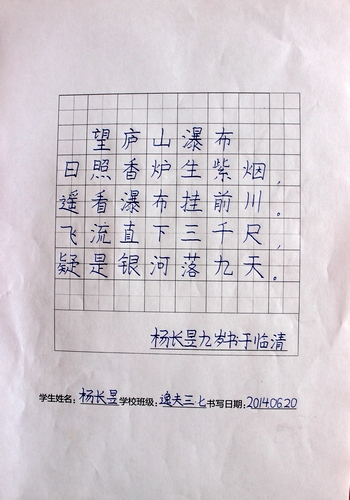 望庐山瀑布
日照香炉生紫烟,
遥看瀑布挂前川。
飞流直下三千尺,
疑是银河落九天。
杨长昱九岁书于临清
学生姓名:杨长昱学校班级:逸夫三.七书写日期:2014.06.20